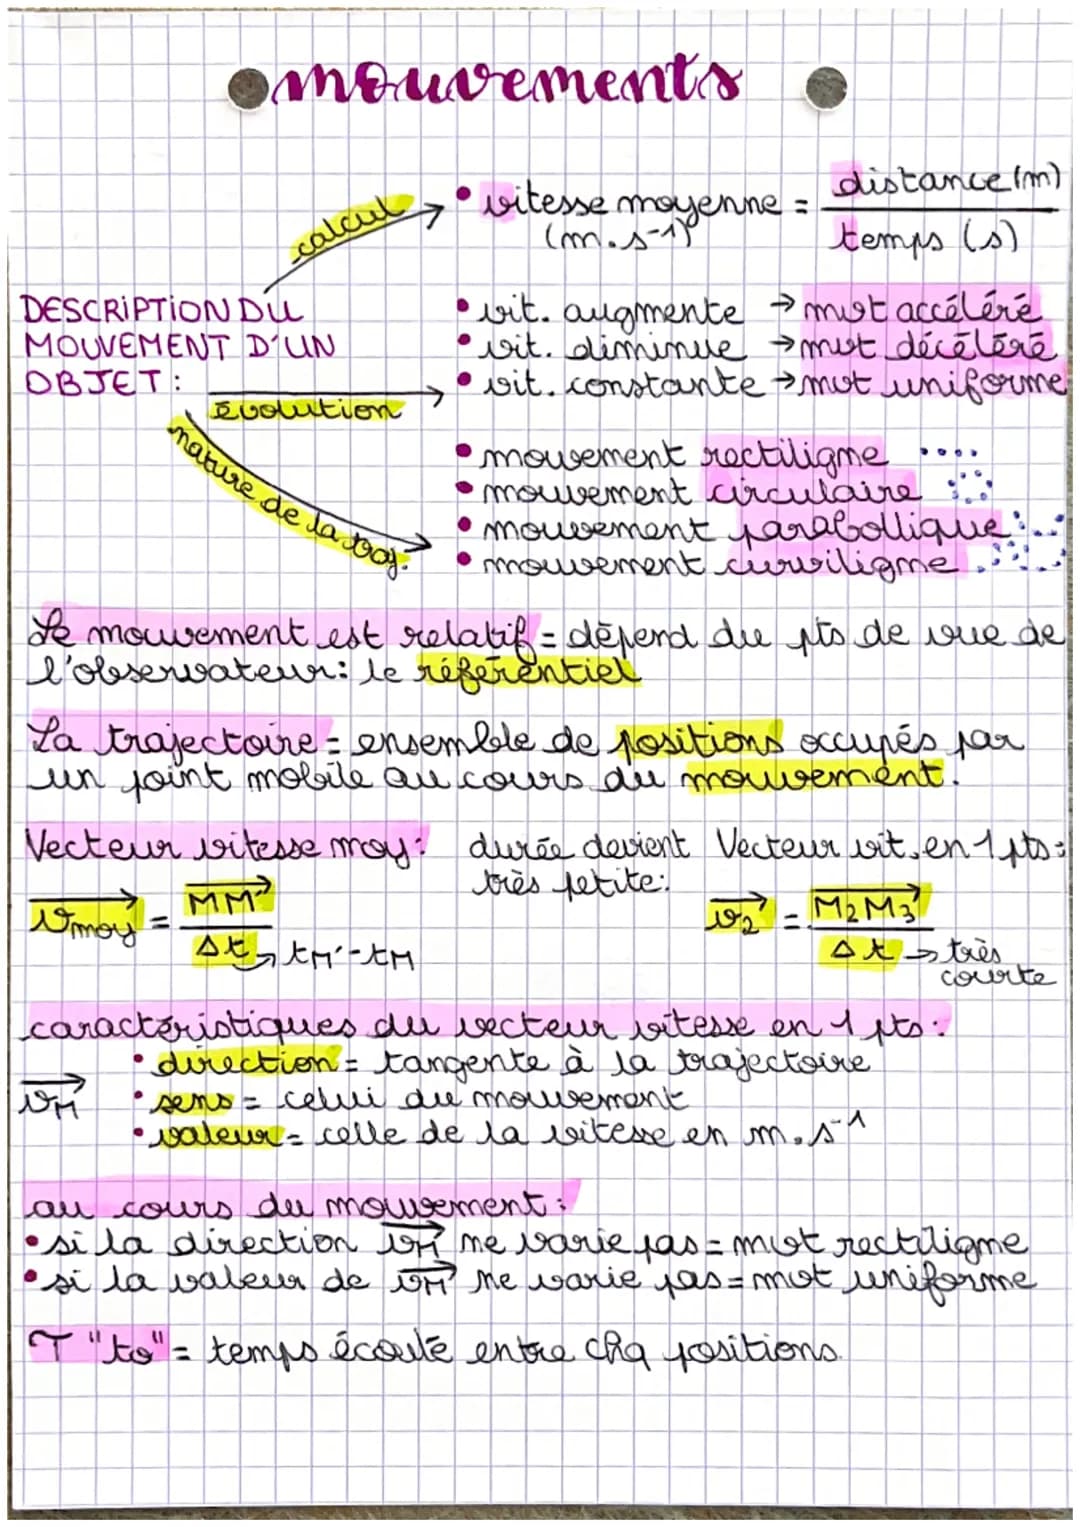 mouvements
calcul
• vitesse moyenne = distance (m) / temps (s)
(m.s⁻¹)
DESCRIPTION DU
MOUVEMENT D'UN
OBJET :
évolution
• vit. augmente → mvt accéléré
• vit. diminue → mvt décéléré
• vit. constante → mvt uniforme
nature de la traj.
• mouvement rectiligne
• mouvement circulaire
• mouvement parabollique
• mouvement curviligne
Le mouvement est relatif = dépend du pts de vue de
l'observateur : le référentiel
La trajectoire = ensemble de positions occupés par
un point mobile au cours du mouvement.
Vecteur vitesse moy :
v⃗moy = MM'⃗ / Δt → tM' - tM
durée devient
très petite :
Vecteur vit. en 1 pts :
v⃗2 = M2M3⃗ / Δt → très
courte
caractéristiques du vecteur vitesse en 1 pts :
v⃗M
• direction = tangente à la trajectoire
• sens = celui du mouvement
• valeur = celle de la vitesse en m.s⁻¹
au cours du mouvement :
• si la direction v⃗M ne varie pas = mvt rectiligne
• si la valeur de v⃗M ne varie pas = mvt uniforme
T "to" = temps écoulé entre chq positions.